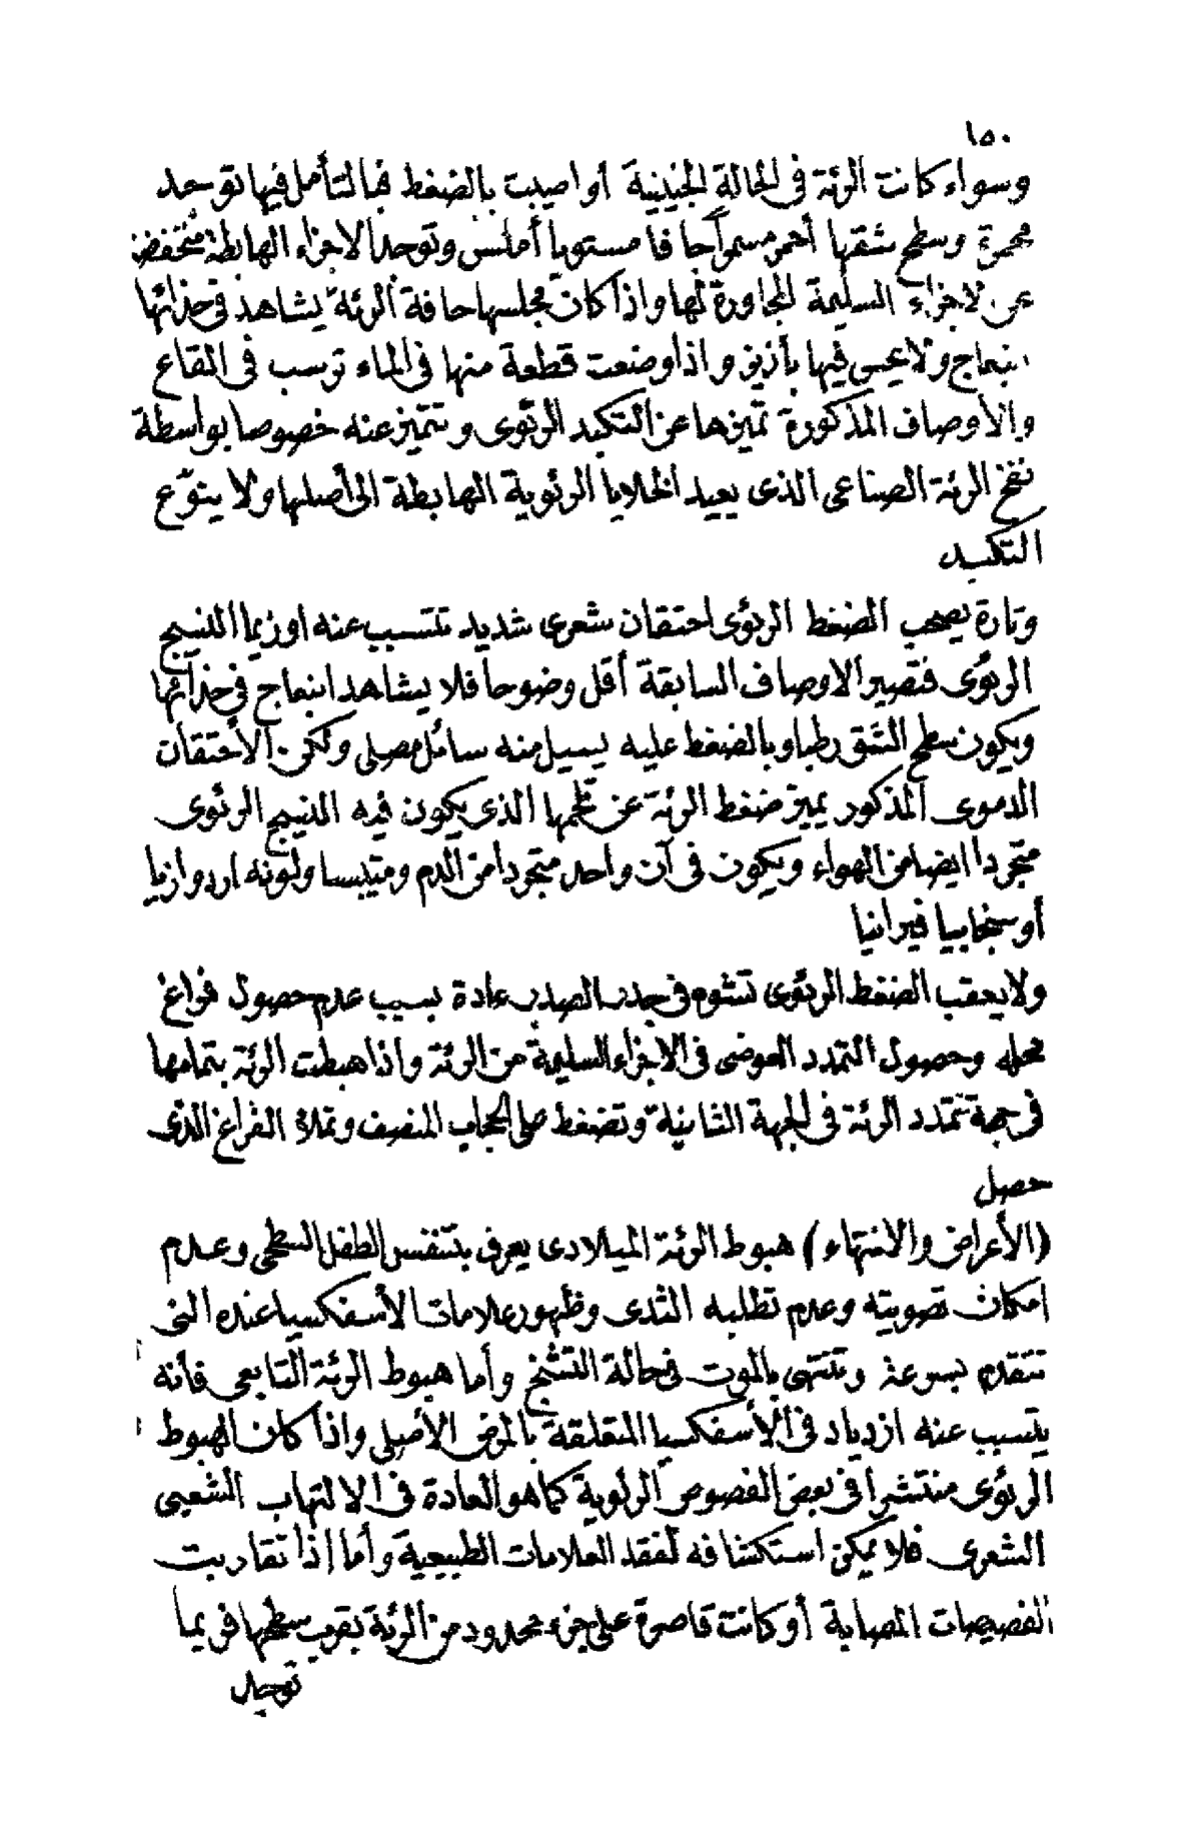 ١٥٠
وسواء كانت الرئة فى الحالة الجنينية أو اصيبت بالضغط فبالتأمل فيها توجد
محمرة وسطح شقها أحمر مسمرا جافا مستويا أملس وتوجد الاجزاء الهابطة منخفضة
عن الاجزاء السليمة المجاورة لها واذا كان مجلسها حافة الرئة يشاهد فى حذائها
انبعاج ولا يحس فيها بأزيز واذا وضعت قطعة منها فى الماء ترسب فى القاع
والأوصاف المذكورة تميزها عن التكبد الرئوى وتتميز عنه خصوصا بواسطة
نفخ الرئة الصناعى الذى يعيد الخلايا الرئوية الهابطة الى أصلها ولا ينوع
التكبد
وتارة يصحب الضغط الرئوى احتقان شعرى شديد تتسبب عنه اوزيما النسيج
الرئوى فتصير الاوصاف السابقة أقل وضوحا فلا يشاهد انبعاج فى حذائها
ويكون سطح الشق رطبا وبالضغط عليه يسيل منه سائل مصلى ولكن الاحتقان
الدموى المذكور يميز ضغط الرئة عن تلحمها الذى يكون فيه النسيج الرئوى
متجردا ايضا من الهواء ويكون فى آن واحد متجردا من الدم ومتيبسا ولونه اردوازيا
أو سنجابيا فيرانيا
ولا يعقب الضغط الرئوى تشوه فى جدر الصدر عادة بسبب عدم حصول فراغ
محله وحصول التمدد العوضى فى الاجزاء السليمة من الرئة واذا هبطت الرئة بتمامها
فى جهة تتمدد الرئة فى الجهة الثانية وتضغط على الحجاب المنصف وتملأ الفراغ الذى
حصل
(الأعراض والانتهاء) هبوط الرئة الميلادى يعرف بتنفس الطفل السطحى وعدم
امكان تصويته وعدم تطلبه الثدى وظهور علامات الأسفكسيا عنده التى
تتقدم بسرعة وتنتهى بالموت فى حالة التشنج وأما هبوط الرئة التابعى فأنه
يتسبب عنه ازدياد فى الأسفكسيا المتعلقة بالمرض الأصلى واذا كان الهبوط
الرئوى منتشرا فى بعض الفصوص الرئوية كما هو العادة فى الالتهاب الشعبى
الشعرى فلا يمكن استكشافه لفقد العلامات الطبيعية وأما إذا تقاربت
الفصيصات المصابة أو كانت قاصرة على جزء محدود من الرئة بقرب سطحها فربما
توجد